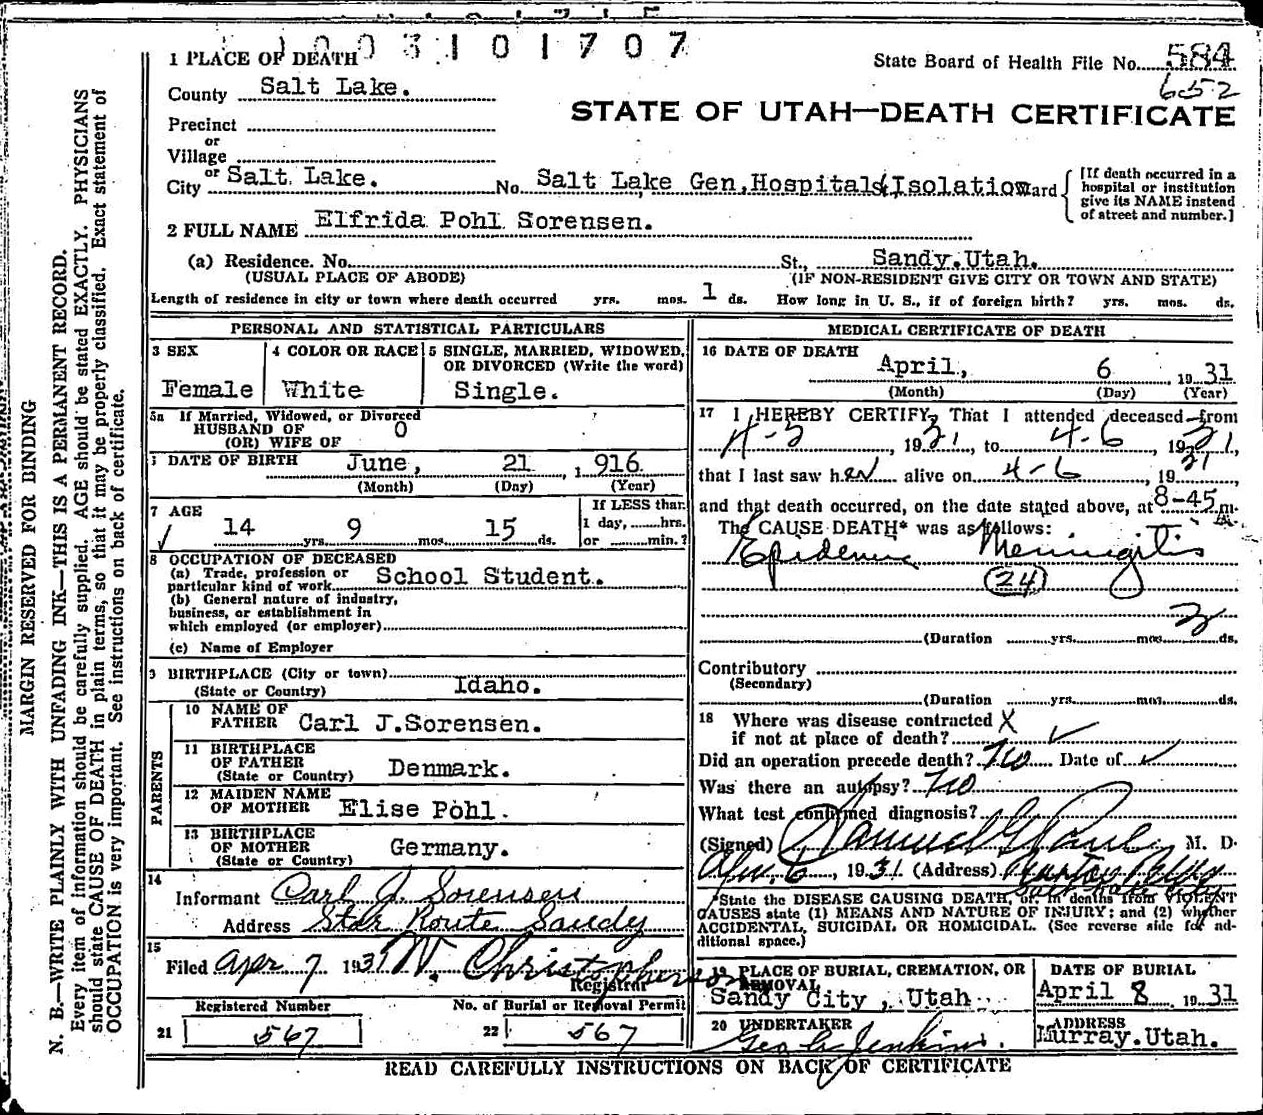 1003101707
1 PLACE OF DEATH
State Board of Health File No. 584
652
County Salt Lake.
STATE OF UTAH—DEATH CERTIFICATE
Precinct
or
Village
or
City Salt Lake. No. Salt Lake Gen, Hospital Isolation Ward
[If death occurred in a hospital or institution give its NAME instead of street and number.]
2 FULL NAME Elfrida Pohl Sorensen.
(a) Residence. No. St., Sandy.Utah.
(USUAL PLACE OF ABODE) (IF NON-RESIDENT GIVE CITY OR TOWN AND STATE)
Length of residence in city or town where death occurred yrs. mos. 1 ds. How long in U. S., if of foreign birth? yrs. mos. ds.
PERSONAL AND STATISTICAL PARTICULARS
3 SEX
Female
4 COLOR OR RACE
White
5 SINGLE, MARRIED, WIDOWED, OR DIVORCED (Write the word)
Single.
5a If Married, Widowed, or Divorced
HUSBAND OF
(OR) WIFE OF O
DATE OF BIRTH June, 21 , 1916
(Month) (Day) (Year)
7 AGE
14 yrs. 9 mos. 15 ds.
If LESS than
1 day, hrs.
or min.?
8 OCCUPATION OF DECEASED
(a) Trade, profession or
particular kind of work School Student.
(b) General nature of industry,
business, or establishment in
which employed (or employer)
(c) Name of Employer
9 BIRTHPLACE (City or town)
(State or Country) Idaho.
PARENTS
10 NAME OF
FATHER Carl J.Sorensen.
11 BIRTHPLACE
OF FATHER
(State or Country) Denmark.
12 MAIDEN NAME
OF MOTHER Elise Pohl.
13 BIRTHPLACE
OF MOTHER
(State or Country) Germany.
14
Informant Carl J. Sorensen
Address Star Route Sandy
15
Filed Apr 7 1931 W. Christopherson
Registrar
Registered Number No. of Burial or Removal Permit
21 567 22 567
MEDICAL CERTIFICATE OF DEATH
16 DATE OF DEATH
April, 6 , 1931
(Month) (Day) (Year)
17 I HEREBY CERTIFY, That I attended deceased from
4-5, 1931, to 4-6, 1931,
that I last saw her alive on 4-6, 1931,
and that death occurred, on the date stated above, at 8-45 A.m.
The CAUSE DEATH* was as follows:
Epidemic Meningitis
(24)
(Duration yrs. mos. 3 ds.
Contributory
(Secondary)
(Duration yrs. mos. ds.
18 Where was disease contracted X
if not at place of death?
Did an operation precede death? no Date of
Was there an autopsy? no
What test confirmed diagnosis?
(Signed) Samuel G. Paul, M. D.
Apr. 6, 1931 (Address)
Salt Lake City
*State the DISEASE CAUSING DEATH, or, in deaths from VIOLENT
CAUSES state (1) MEANS AND NATURE OF INJURY; and (2) whether
ACCIDENTAL, SUICIDAL OR HOMICIDAL. (See reverse side for ad-
ditional space.)
19 PLACE OF BURIAL, CREMATION, OR
REMOVAL
Sandy City, Utah
DATE OF BURIAL
April 8 1931
20 UNDERTAKER
Geo. Jenkins.
ADDRESS
Murray.Utah.
READ CAREFULLY INSTRUCTIONS ON BACK OF CERTIFICATE
MARGIN RESERVED FOR BINDING
N. B.—WRITE PLAINLY WITH UNFADING INK—THIS IS A PERMANENT RECORD.
Every item of information should be carefully supplied. AGE should be stated EXACTLY. PHYSICIANS
should state CAUSE OF DEATH in plain terms, so that it may be properly classified. Exact statement of
OCCUPATION is very important. See instructions on back of certificate.